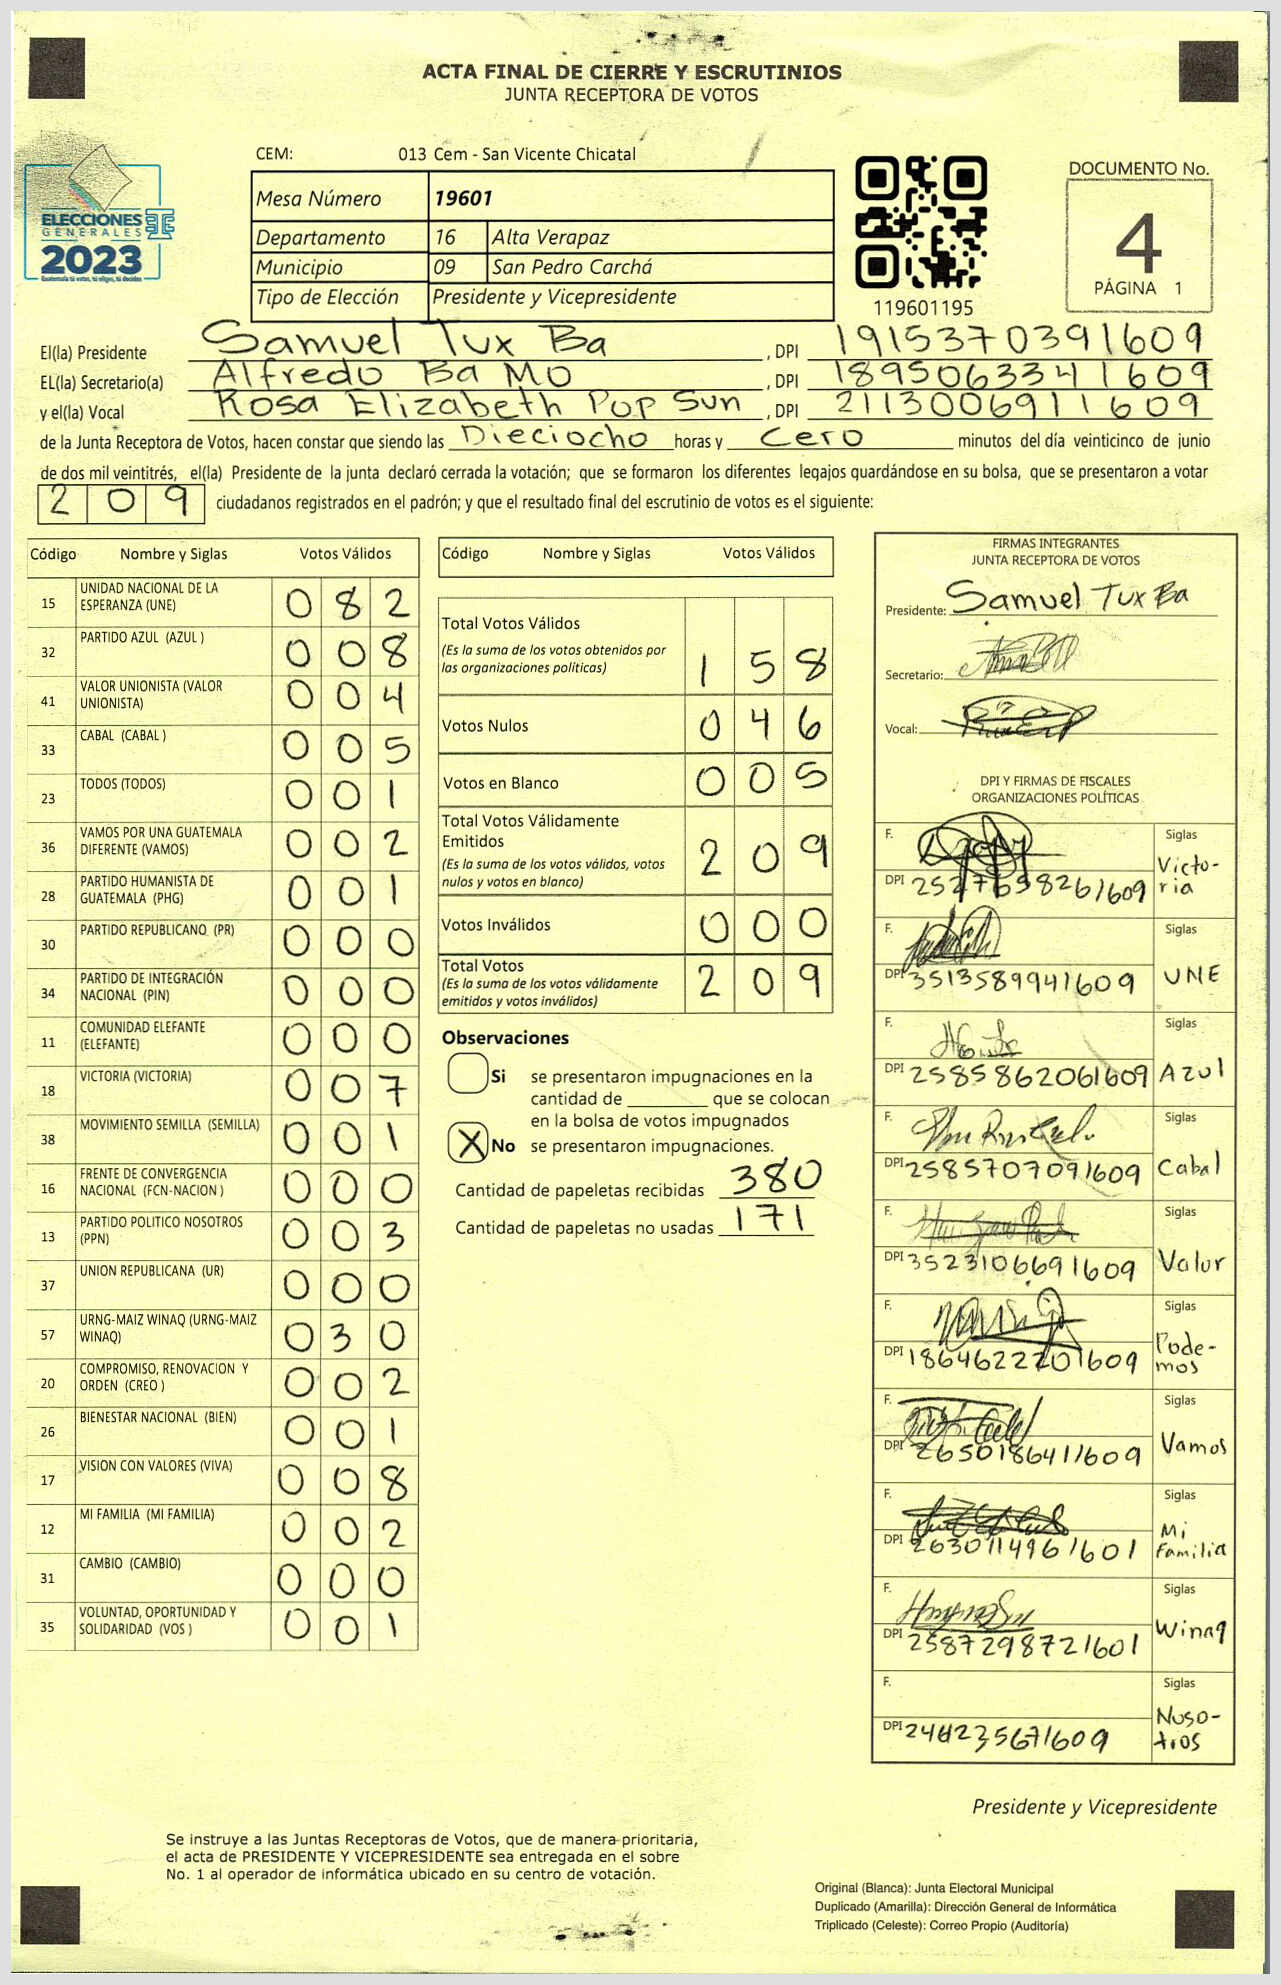 ACTA FINAL DE CIERRE Y ESCRUTINIOS
JUNTA RECEPTORA DE VOTOS
CEM: 013 Cem - San Vicente Chicatal
ELECCIONES
GENERALES
2023
Mesa Número 19601
Departamento 16 Alta Verapaz
Municipio 09 San Pedro Carchá
Tipo de Elección Presidente y Vicepresidente
119601195
DOCUMENTO No.
4
PÁGINA 1
El(la) Presidente Samuel Tux Ba , DPI 1915370391609
EL(la) Secretario(a) Alfredo Ba Mo , DPI 1895063341609
y el(la) Vocal Rosa Elizabeth Pop Sun , DPI 2113006911609
de la Junta Receptora de Votos, hacen constar que siendo las Dieciocho horas y Cero minutos del día veinticinco de junio
de dos mil veintitrés, el(la) Presidente de la junta declaró cerrada la votación; que se formaron los diferentes legajos quardándose en su bolsa, que se presentaron a votar
2 0 9 ciudadanos registrados en el padrón; y que el resultado final del escrutinio de votos es el siguiente:
Código Nombre y Siglas Votos Válidos
15 UNIDAD NACIONAL DE LA ESPERANZA (UNE) 0 8 2
32 PARTIDO AZUL (AZUL ) 0 0 8
41 VALOR UNIONISTA (VALOR UNIONISTA) 0 0 4
33 CABAL (CABAL ) 0 0 5
23 TODOS (TODOS) 0 0 1
36 VAMOS POR UNA GUATEMALA DIFERENTE (VAMOS) 0 0 2
28 PARTIDO HUMANISTA DE GUATEMALA (PHG) 0 0 1
30 PARTIDO REPUBLICANO (PR) 0 0 0
34 PARTIDO DE INTEGRACIÓN NACIONAL (PIN) 0 0 0
11 COMUNIDAD ELEFANTE (ELEFANTE) 0 0 0
18 VICTORIA (VICTORIA) 0 0 7
38 MOVIMIENTO SEMILLA (SEMILLA) 0 0 1
16 FRENTE DE CONVERGENCIA NACIONAL (FCN-NACION ) 0 0 0
13 PARTIDO POLITICO NOSOTROS (PPN) 0 0 3
37 UNION REPUBLICANA (UR) 0 0 0
57 URNG-MAIZ WINAQ (URNG-MAIZ WINAQ) 0 3 0
20 COMPROMISO, RENOVACION Y ORDEN (CREO ) 0 0 2
26 BIENESTAR NACIONAL (BIEN) 0 0 1
17 VISION CON VALORES (VIVA) 0 0 8
12 MI FAMILIA (MI FAMILIA) 0 0 2
31 CAMBIO (CAMBIO) 0 0 0
35 VOLUNTAD, OPORTUNIDAD Y SOLIDARIDAD (VOS ) 0 0 1
Código Nombre y Siglas Votos Válidos
Total Votos Válidos
(Es la suma de los votos obtenidos por
las organizaciones políticas) 1 5 8
Votos Nulos 0 4 6
Votos en Blanco 0 0 5
Total Votos Válidamente
Emitidos 2 0 9
(Es la suma de los votos válidos, votos
nulos y votos en blanco)
Votos Inválidos 0 0 0
Total Votos 2 0 9
(Es la suma de los votos válidamente
emitidos y votos inválidos)
Observaciones
Si se presentaron impugnaciones en la
cantidad de ________ que se colocan
en la bolsa de votos impugnados
X No se presentaron impugnaciones.
Cantidad de papeletas recibidas 380
Cantidad de papeletas no usadas 171
FIRMAS INTEGRANTES
JUNTA RECEPTORA DE VOTOS
Presidente: Samuel Tux Ba
Secretario:
Vocal:
DPI Y FIRMAS DE FISCALES
ORGANIZACIONES POLÍTICAS
F. Siglas
DPI Victo-
ria
F. Siglas
DPI 3513589941609 UNE
F. Siglas
DPI 2585862061609 Azul
F. Siglas
DPI 2585707091609 Cabal
F. Siglas
DPI 3523106691609 Valor
F. Siglas
DPI 1864622201609 Pode-
mos
F. Siglas
DPI 2650186411609 Vamos
F. Siglas
DPI 2630114961601 Mi
Familia
F. Siglas
DPI 2587298721601 Winaq
F. Siglas
DPI Noso-
tros
Presidente y Vicepresidente
Se instruye a las Juntas Receptoras de Votos, que de manera prioritaria,
el acta de PRESIDENTE Y VICEPRESIDENTE sea entregada en el sobre
No. 1 al operador de informática ubicado en su centro de votación.
Original (Blanca): Junta Electoral Municipal
Duplicado (Amarilla): Dirección General de Informática
Triplicado (Celeste): Correo Propio (Auditoría)